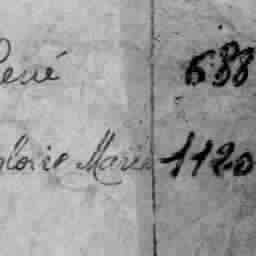 René 688
Gloire Marie 1120